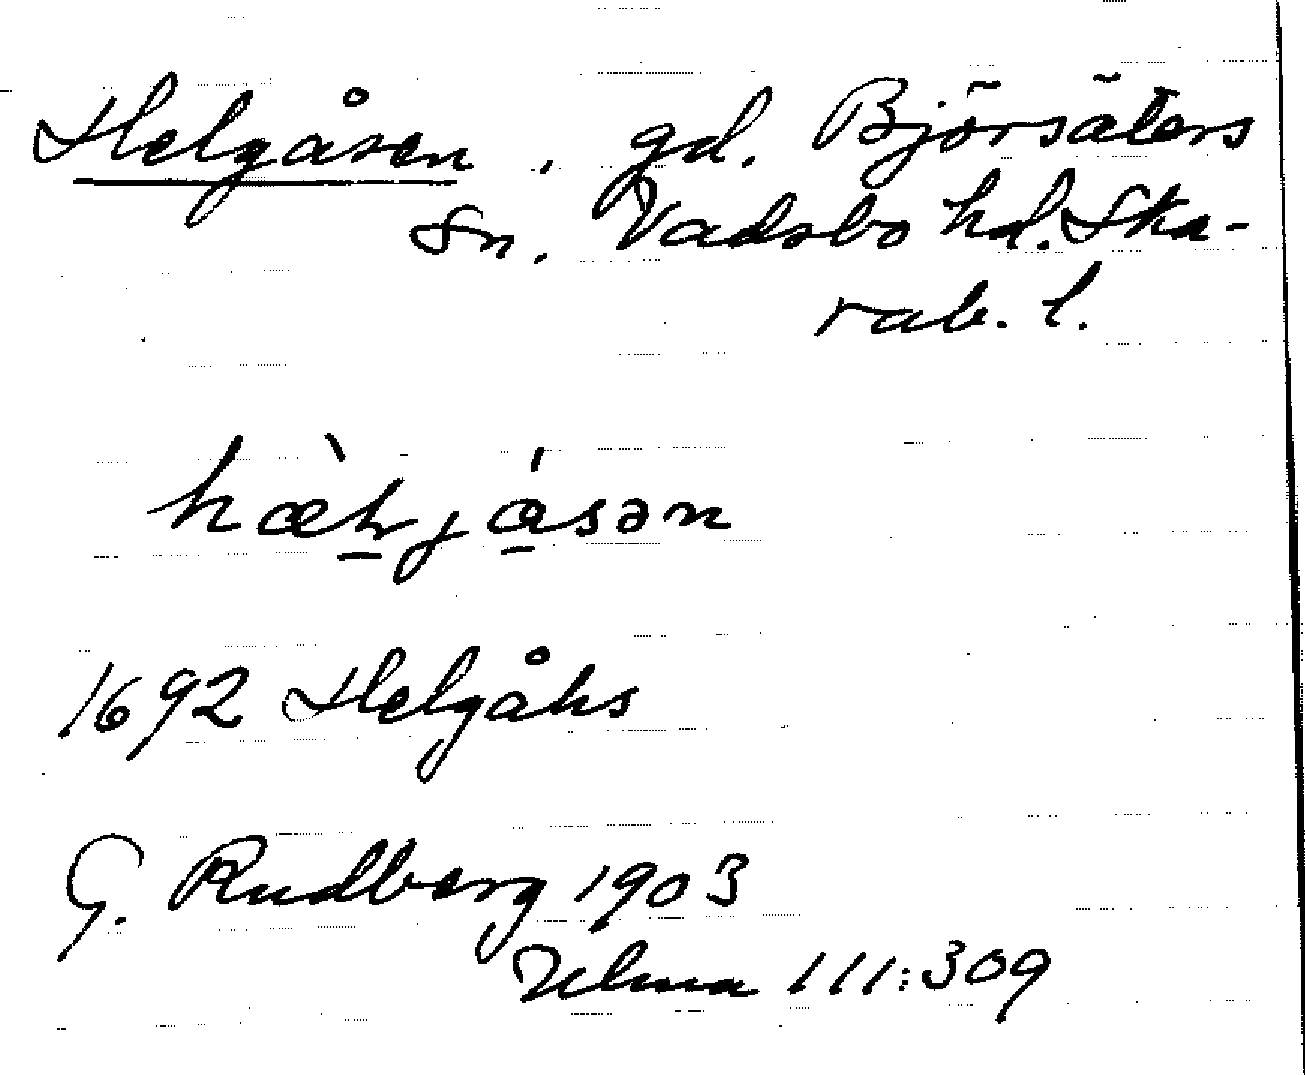 Helgåsen, gd. Björsäters
sn. Vadsbo hd. Ska-
rab. l.
1692 Helgåhs
G. Rudberg 1903
Ulma 111:309